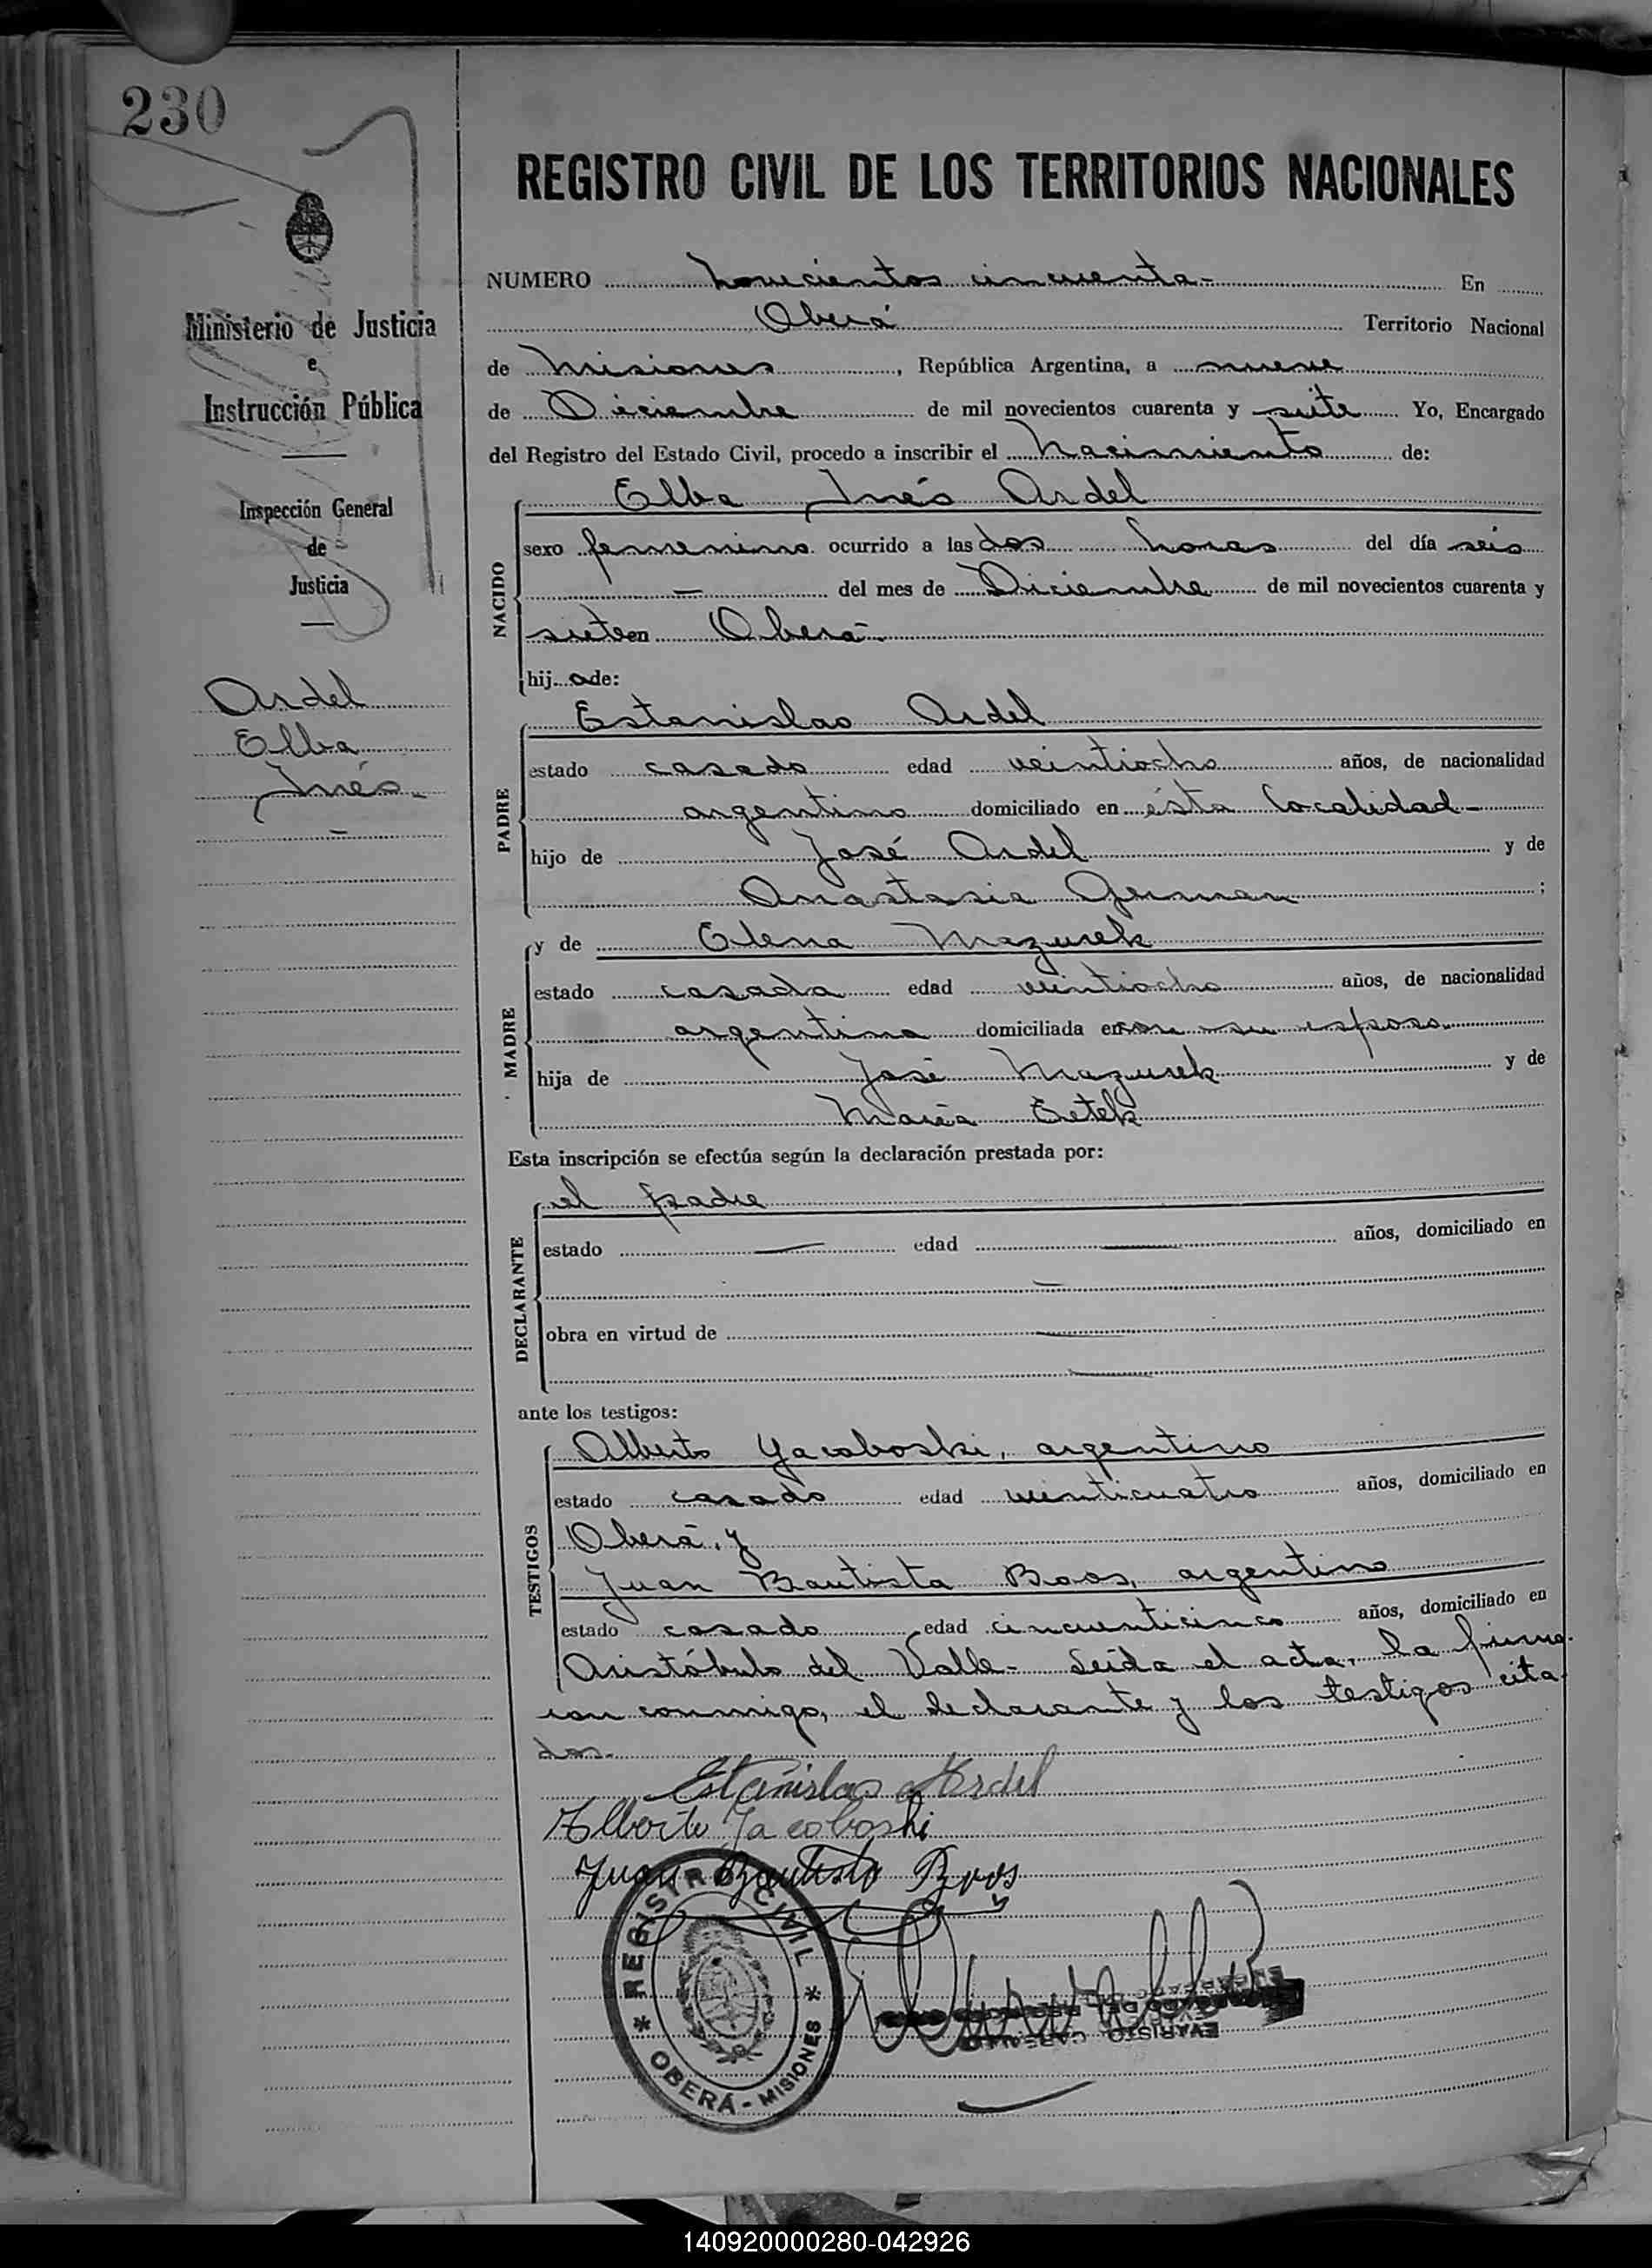 230
REGISTRO CIVIL DE LOS TERRITORIOS NACIONALES
Ministerio de Justicia
e
Instrucción Pública
Inspección General
de
Justicia
Ardel
Elba
Inés.-
NUMERO novecientos cincuenta- En
Oberá Territorio Nacional
de Misiones, República Argentina, a nueve
de Diciembre de mil novecientos cuarenta y siete Yo, Encargado
del Registro del Estado Civil, procedo a inscribir el Nacimiento de:
NACIDO
Elba Inés Ardel
sexo femenino ocurrido a las dos horas del día seis
- del mes de Diciembre de mil novecientos cuarenta y
siete en Oberá-
hija de:
PADRE
Estanislao Ardel
estado casado edad veintiocho años, de nacionalidad
argentino domiciliado en ésta localidad-
hijo de José Ardel y de
Anastasia German;
MADRE
y de Elena Mazurek
estado casada edad veintiocho años, de nacionalidad
argentina domiciliada en con su esposo
hija de José Mazurek y de
María
Esta inscripción se efectúa según la declaración prestada por:
DECLARANTE
el padre
estado — edad — años, domiciliado en
—
obra en virtud de —
—
ante los testigos:
TESTIGOS
Alberto Yacoboski, argentino
estado casado edad veinticuatro años, domiciliado en
Oberá, y
Juan Bautista Boos, argentino
estado casado edad cincuenticinco años, domiciliado en
Aristóbulo del Valle- Leída el acta, la firma-
ron conmigo, el declarante y los testigos cita-
dos.-
Estanislao Ardel
Alberto Jacoboski
Juan Bautista Boos
REGISTRO CIVIL
OBERÁ - MISIONES
EVARISTO
140920000280-042926